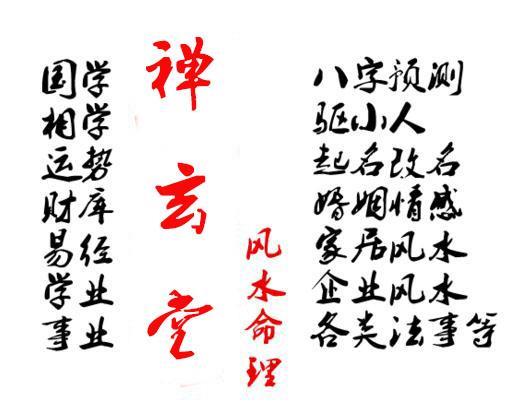 国学
相学
运势
财库
易经
学业
事业
禅玄堂
风水命理
八字预测
驱小人
起名改名
婚姻情感
家居风水
企业风水
各类法事等